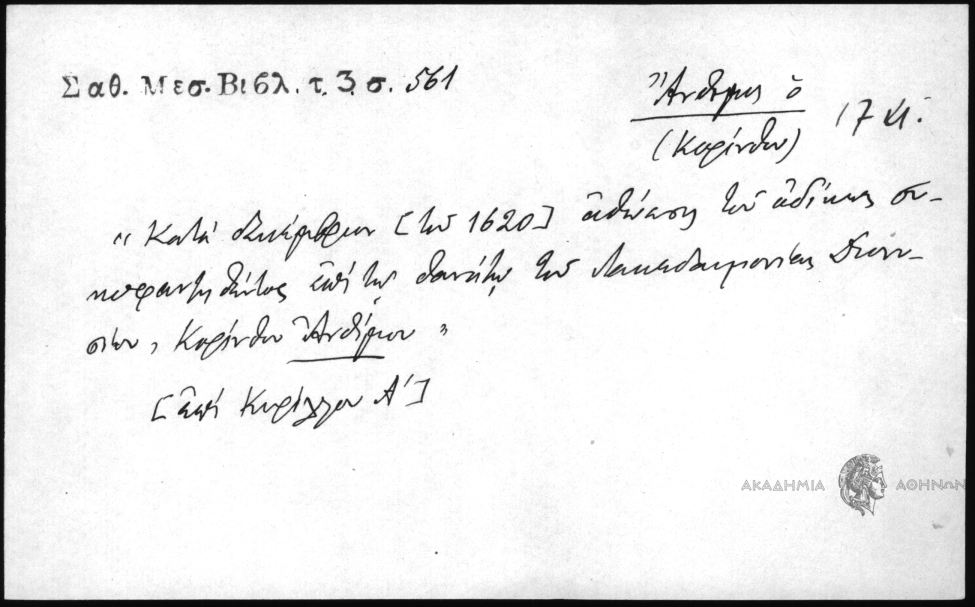 Σαθ. Μεσ. Βιβλ. τ. 3 σ. 561
Ἄνθιμος ὁ
(Κορίνθου)
17 αἰ.
"Κατὰ Δεκέμβριον [τοῦ 1620] ἀθώωσις τοῦ ἀδίκως συ-
κοφαντηθέντος ἐπὶ τῷ θανάτῳ τοῦ Λακεδαιμονίας Διονυ-
σίου, Κορίνθου Ἀνθίμου"
[ἐπὶ Κυρίλλου Α']
ΑΚΑΔΗΜΙΑ ΑΘΗΝΩΝ